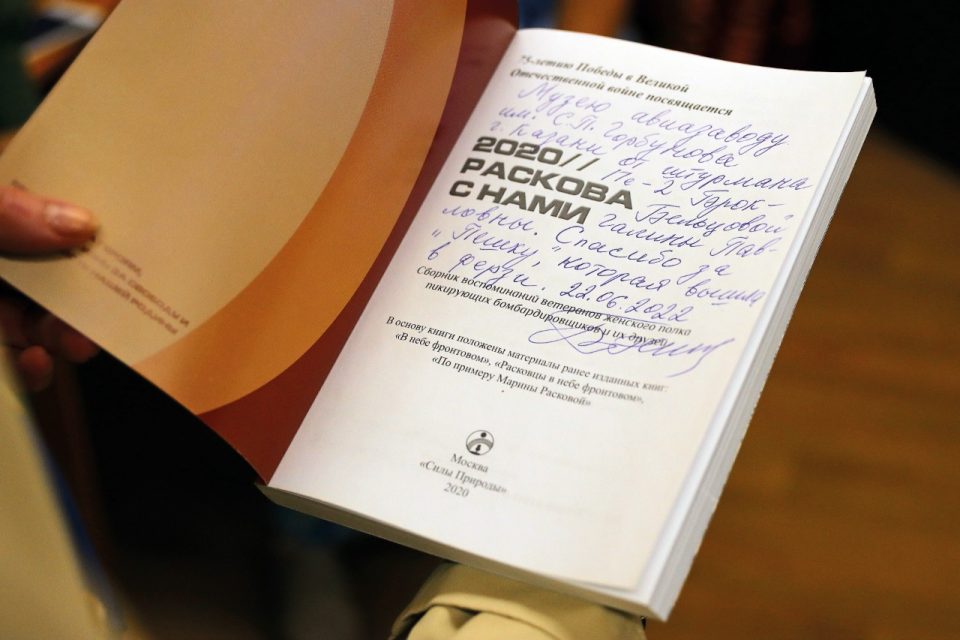 75-летию Победы в Великой
Отечественной войне посвящается
Музею авиазаводу
им. С.П. Горбунова
г. Казани от штурмана
2020//
Пе-2 Брок-
РАСКОВА
Бельцовой
С НАМИ
Галины Пав-
ловны. Спасибо за
"Пешку," которая вышла
в ферзи. 22.06.2022
Сборник воспоминаний ветеранов женского полка
пикирующих бомбардировщиков и их друзей
В основу книги положены материалы ранее изданных книг:
«В небе фронтовом», «Расковцы в небе фронтовом»,
«По примеру Марины Расковой»
Москва
«Силы Природы»
2020